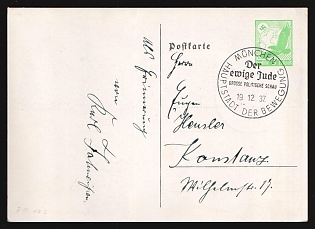 Als Erinnerung
von
Karl
Postkarte
Herrn
Eugen
Heusler
Konstanz
Wilhelmstr. 17.
MÜNCHEN
Der
ewige Jude
GROSSE POLITISCHE SCHAU
19.12.37
HAUPTSTADT DER BEWEGUNG
5